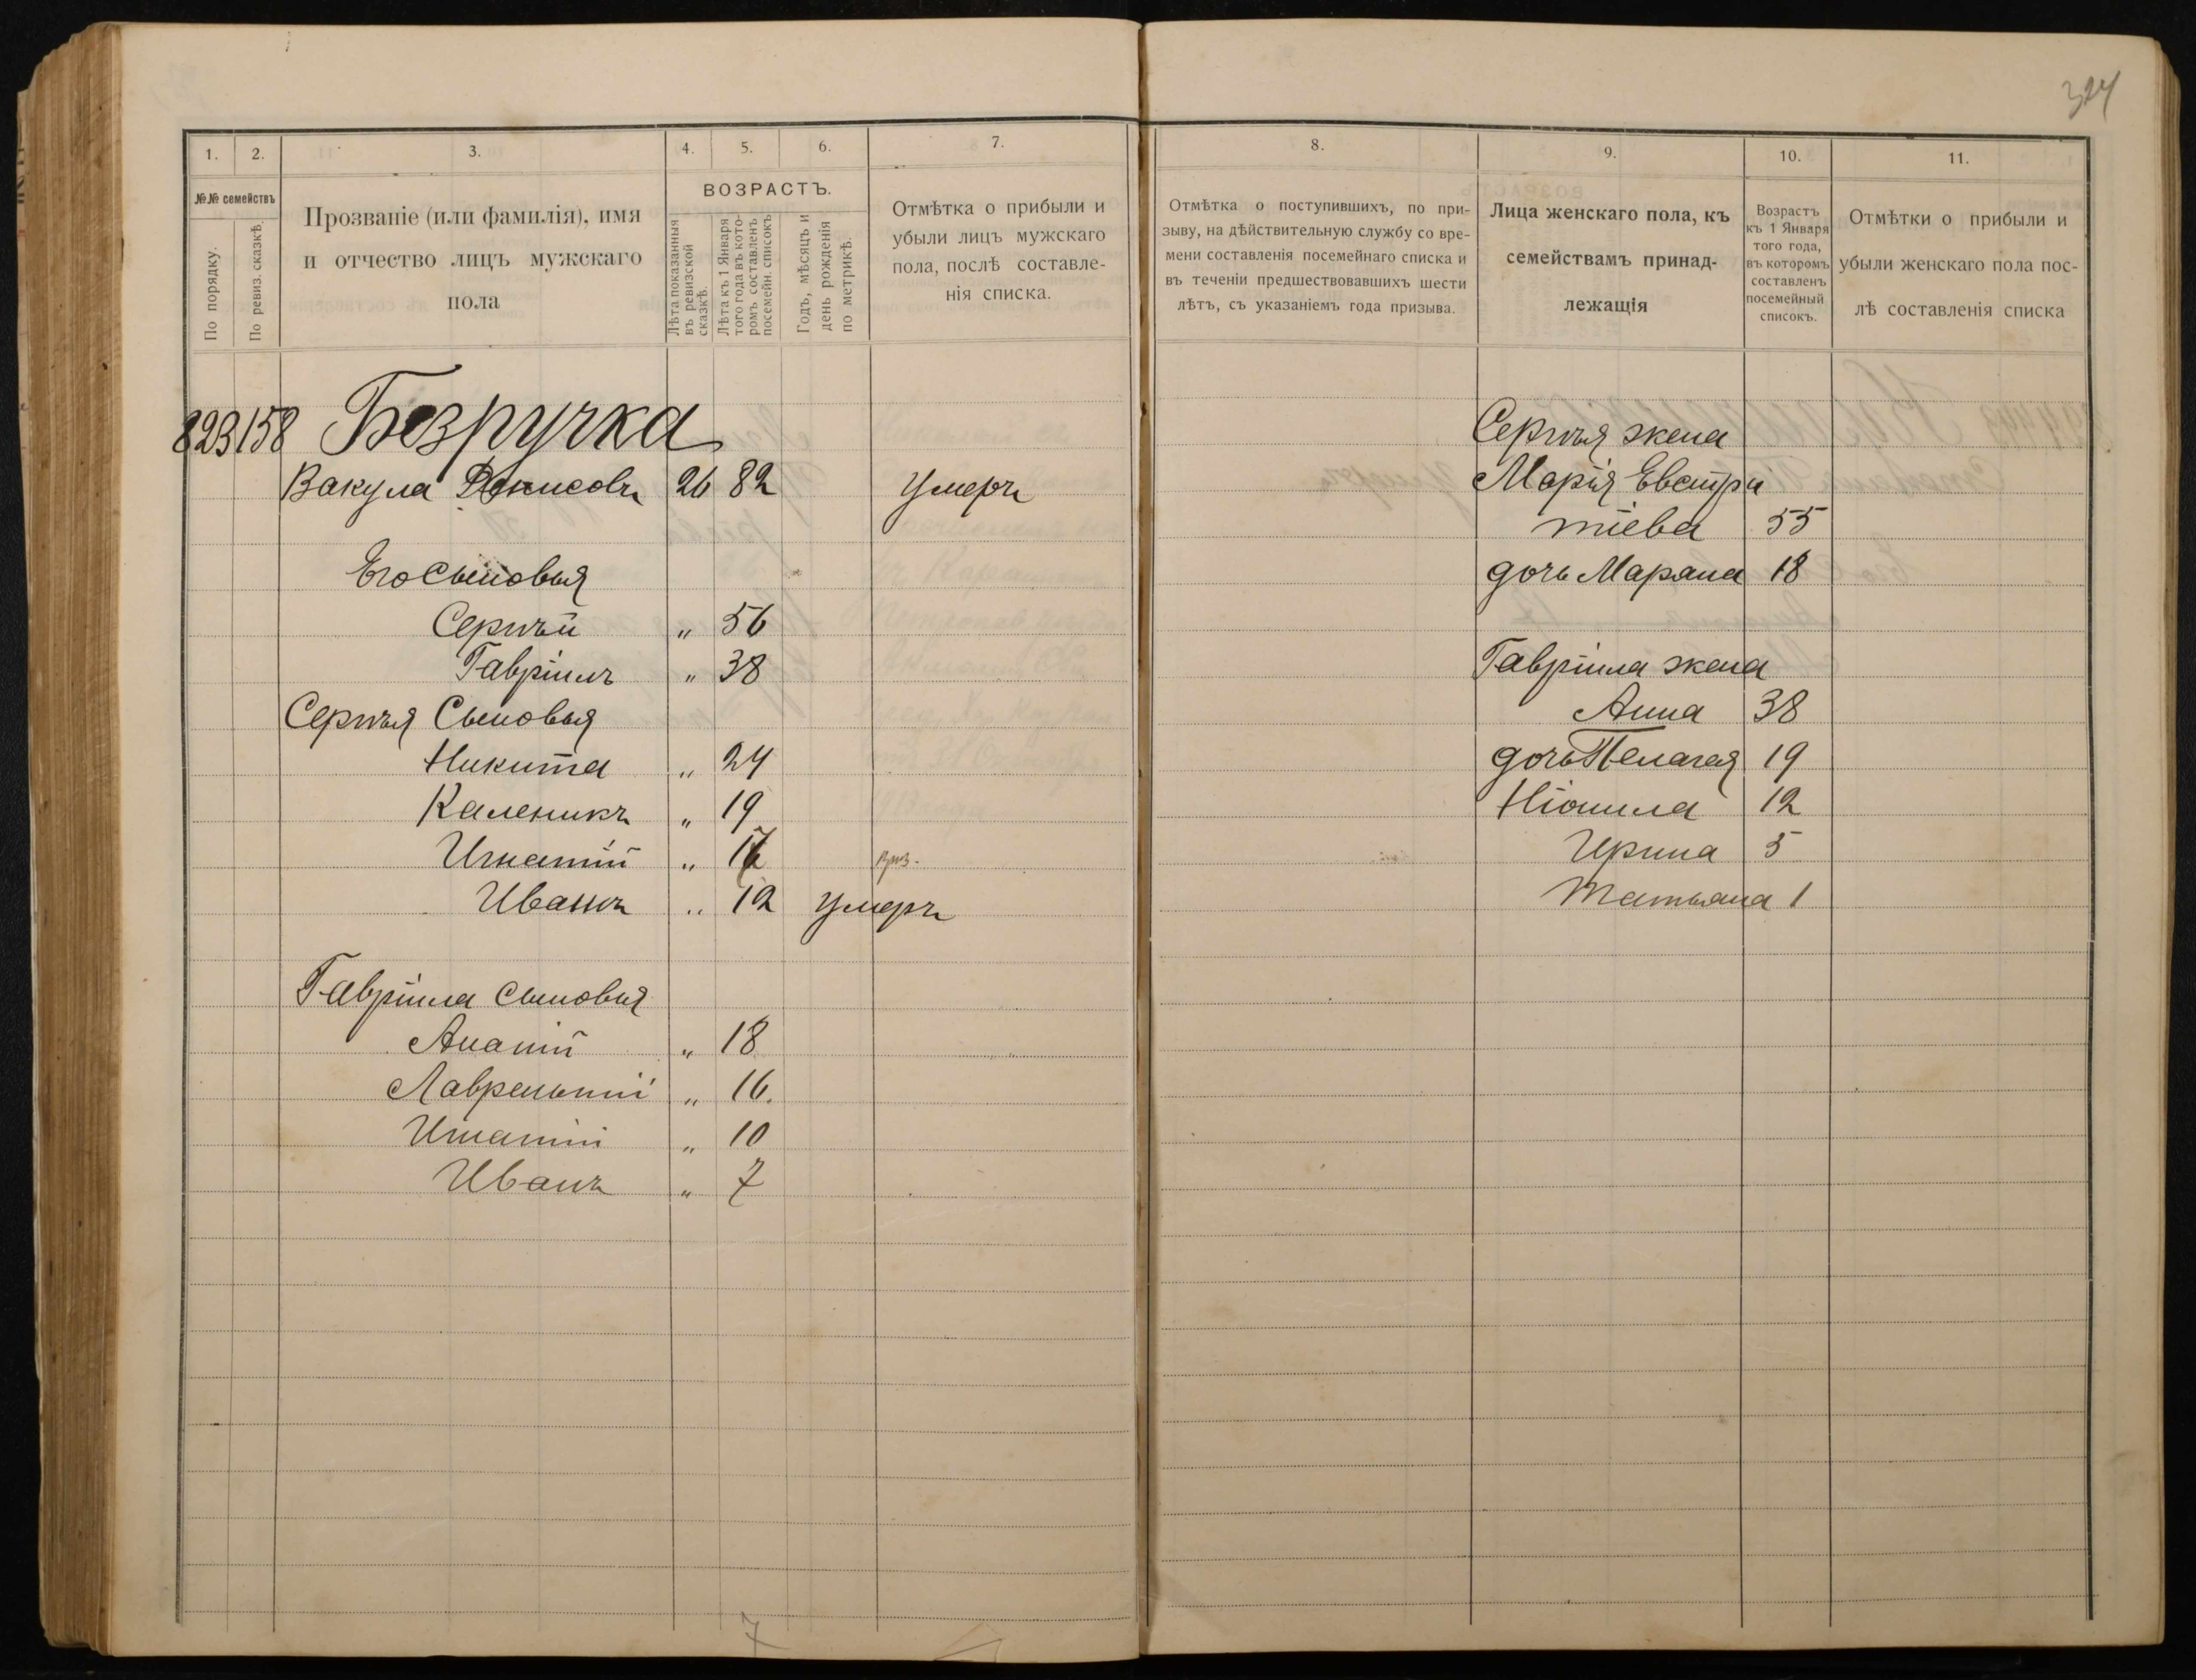 324
1. 2. 3. 4. 5. 6. 7.
№№ семействъ
По порядку.
По ревиз. сказкѣ.
Прозваніе (или фамилія), имя
и отчество лицъ мужскаго
пола
ВОЗРАСТЪ.
Лѣта показанныя
въ ревизской
сказкѣ.
Лѣта къ 1 Января
того года въ кото-
ромъ составленъ
посемейн. списокъ
Годъ, мѣсяцъ и
день рожденія
по метрикѣ.
Отмѣтка о прибыли и
убыли лицъ мужскаго
пола, послѣ составле-
нія списка.
823 158 Безручка
Вакула Денисовъ 26 82 умеръ
Его Сыновья
Сергѣй " 56
Гавріилъ " 38
Сергѣя Сыновья
Никита " 24
Каленикъ " 19
Игнатій " 17
Иванъ " 12 умеръ
Гавріила сыновья
Ананій " 18
Лаврентій " 16.
Игнатій " 10
Иванъ " 7
7
8. 9. 10. 11.
Отмѣтка о поступившихъ, по при-
зыву, на дѣйствительную службу со вре-
мени составленія посемейнаго списка и
въ теченіи предшествовавшихъ шести
лѣтъ, съ указаніемъ года призыва.
Лица женскаго пола, къ
семействамъ принад-
лежащія
Возрастъ
къ 1 Января
того года,
въ которомъ
составленъ
посемейный
списокъ.
Отмѣтки о прибыли и
убыли женскаго пола пос-
лѣ составленія списка
Сергѣя жена
Марія Евстра
тіева 55
дочь Марана 18
Гавріила жена
Анна 38
дочь Пелагея 19
Ніонила 12
Ирина 5
Татьяна 1